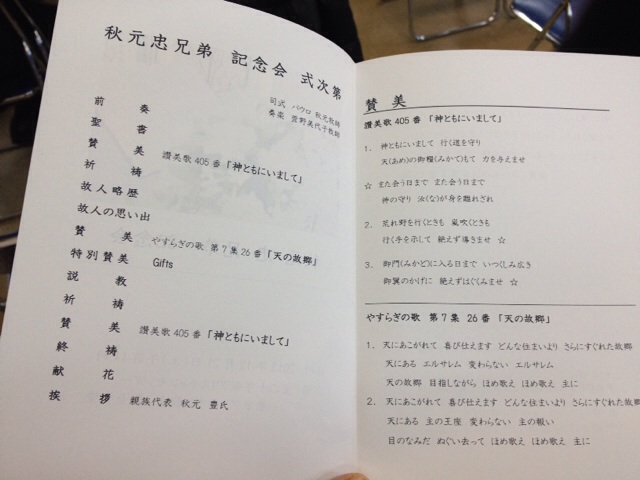 秋元忠兄弟 記念会 式次第
司式 パウロ 秋元牧師
奏楽 萱野美代子教師
前奏
聖書
賛美 讃美歌405番「神ともにいまして」
祈祷
故人略歴
故人の思い出
賛美 やすらぎの歌 第7集26番「天の故郷」
特別賛美 Gifts
説教
祈祷
賛美 讃美歌405番「神ともにいまして」
終祷
献花
挨拶 親族代表 秋元 豊氏
賛 美
讃美歌405番「神ともにいまして」
1. 神ともにいまして 行く道を守り
天(あめ)の御糧(みかて)もて 力を与えませ
☆ また会う日まで また会う日まで
神の守り 汝(な)が身を離れざれ
2. 荒れ野を行くときも 嵐吹くときも
行く手を示して 絶えず導きませ ☆
3. 御門(みかど)に入る日まで いつくしみ広き
御翼のかげに 絶えずはぐくみませ ☆
やすらぎの歌 第7集 26番 「天の故郷」
1. 天にあこがれて 喜び仕えます どんな住まいより さらにすぐれた故郷
天にある エルサレム 変わらない エルサレム
天の故郷 目指しながら ほめ歌え ほめ歌え 主に
2. 天にあこがれて 喜び仕えます どんな住まいより さらにすぐれた故郷
天にある 主の王座 変わらない 主の報い
目のなみだ ぬぐい去って ほめ歌え ほめ歌え 主に